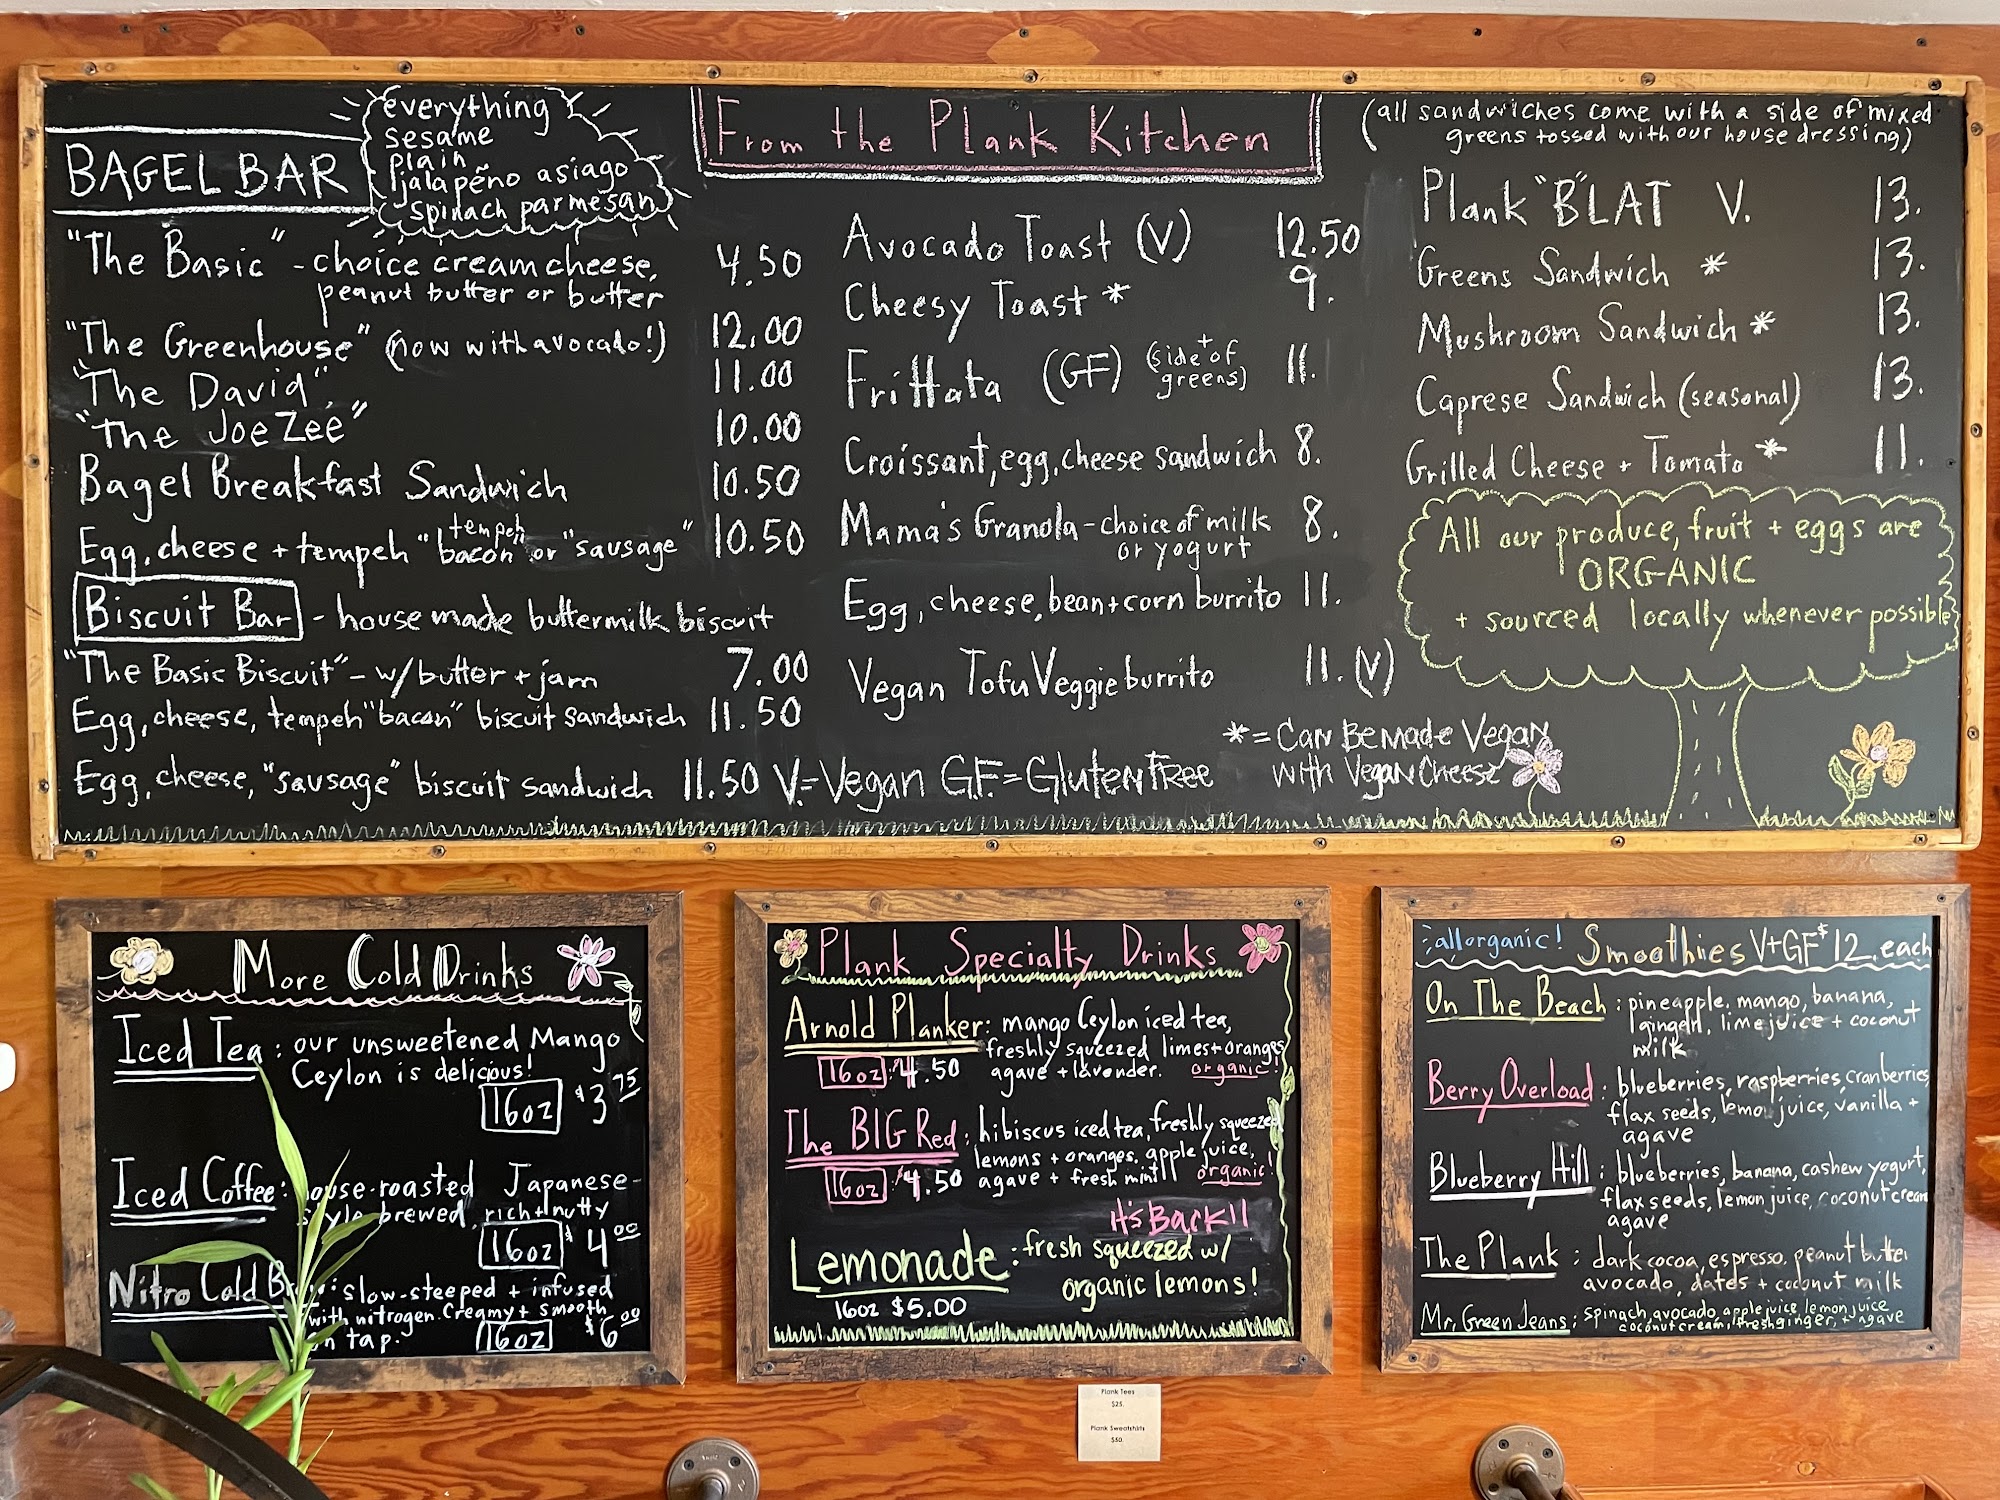 BAGEL BAR
everything
sesame
plain
jalapeño asiago
spinach parmesan
"The Basic" - choice cream cheese, 4.50
peanut butter or butter
"The Greenhouse" (now with avocado!) 12.00
"The David". 11.00
"The Joe Zee" 10.00
Bagel Breakfast Sandwich 10.50
Egg, cheese + tempeh "tempeh bacon" or "sausage" 10.50
Biscuit Bar - house made buttermilk biscuit
"The Basic Biscuit" - w/ butter + jam 7.00
Egg, cheese, tempeh "bacon" biscuit sandwich 11.50
Egg, cheese, "sausage" biscuit sandwich 11.50
From the Plank Kitchen
Avocado Toast (V) 12.50
Cheesy Toast * 9.
Frittata (GF) (side + of greens) 11.
Croissant, egg, cheese sandwich 8.
Mama's Granola - choice of milk 8.
or yogurt
Egg, cheese, bean + corn burrito 11.
Vegan Tofu Veggie burrito 11. (V)
V. = Vegan G.F. = Gluten Free
* = Can Be made Vegan
with Vegan Cheese
(all sandwiches come with a side of mixed
greens tossed with our house dressing)
Plank "B"LAT V. 13.
Greens Sandwich * 13.
Mushroom Sandwich * 13.
Caprese Sandwich (seasonal) 13.
Grilled Cheese + Tomato * 11.
All our produce, fruit + eggs are
ORGANIC
+ sourced locally whenever possible
More Cold Drinks
Iced Tea : our unsweetened Mango
Ceylon is delicious!
16oz $3.75
Iced Coffee : house-roasted Japanese-
style brewed, rich + nutty
16oz $4.00
Nitro Cold Brew : slow-steeped + infused
with nitrogen. Creamy + smooth
on tap. 16oz $6.00
Plank Specialty Drinks
Arnold Planker : mango Ceylon iced tea,
freshly squeezed limes + oranges
16oz $4.50 agave + lavender. organic!
The BIG Red : hibiscus iced tea, freshly squeezed
lemons + oranges, apple juice,
16oz $4.50 agave + fresh mint organic!
it's Back!!
Lemonade : fresh squeezed w/
organic lemons!
16oz $5.00
all organic! Smoothies V+GF $12. each
On The Beach : pineapple, mango, banana,
ginger, lime juice + coconut
milk
Berry Overload : blueberries, raspberries, cranberries,
flax seeds, lemon juice, vanilla +
agave
Blueberry Hill : blueberries, banana, cashew yogurt,
flax seeds, lemon juice, coconut cream
agave
The Plank : dark cocoa, espresso, peanut butter
avocado, dates + coconut milk
Mr. Green Jeans : spinach, avocado, apple juice, lemon juice
coconut cream, fresh ginger, + agave
Plank Tees
$25.
Plank Sweatshirts
$50.